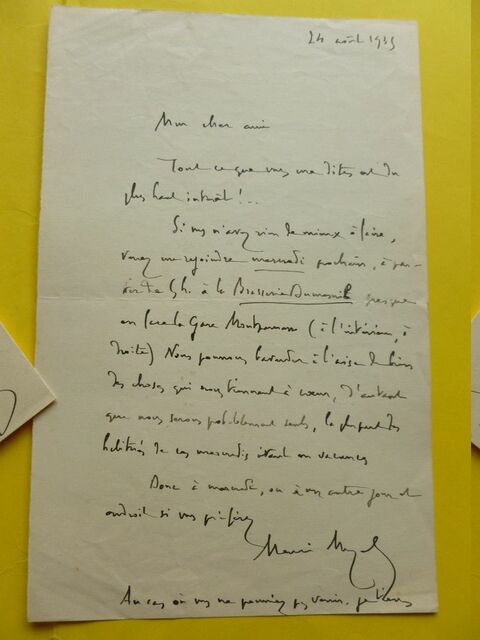 24 août 1935
Mon cher ami
Tout ce que vous me dites est du
plus haut intérêt !...
Si vous n'avez rien de mieux à faire,
venez me rejoindre mercredi prochain, à par-
tir de 5h. à la Brasserie Dumesnil presque
en face la Gare Montparnasse (à l'intérieur, à
droite) Nous pourrons bavarder à l'aise de bien
des choses qui nous tiennent à cœur, d'autant
que nous serons probablement seuls, la plupart des
habitués de ces mercredis étant en vacances
Donc à mercredi, ou à un autre jour et
endroit si vous préférez
Au cas où vous ne pourriez pas venir,